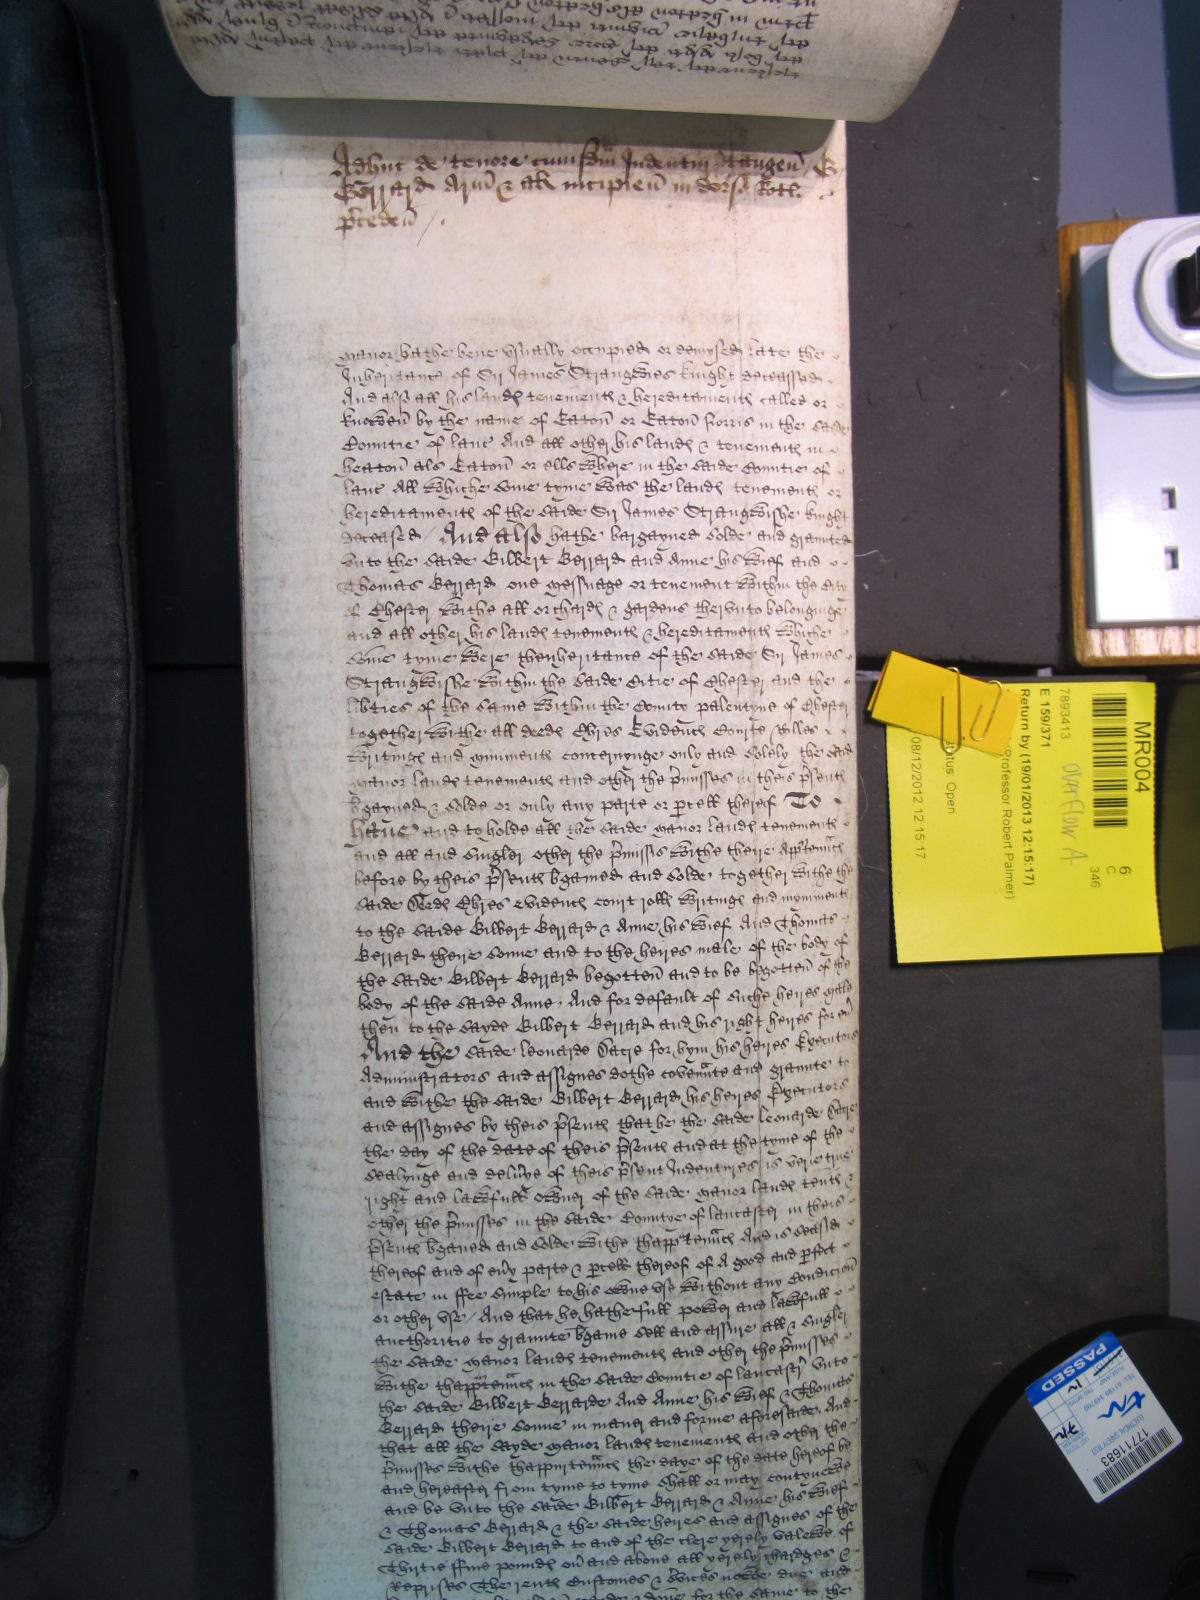 Adhuc de tenore cuiusdam Indentur tangen G
Gerrard Armi & al incipien in dorso Rotli
preceden
manor hathe bene usually occupied or demysed late the
Inheritance of Sir James Strangwies knight deceassed
And also all his landes tenementes & hereditamentes called or
knowen by the name of Eaton or Eaton Norris in the saide
Countie of Lanc And all other his landes & tenementes in
heaton als Eaton or ells where in the saide Countie of
Lanc All whiche some tyme was the landes tenementes or
hereditamentes of the saide Sir James Strangwisshe knight
deceased / And also hathe bargayned solde and graunted
unto the saide Gilbert Gerrard and Anne his wief and
Thomas Gerrard one messuage or tenement within the City
of Chester withe all orchardes & gardens therunto belonginge
and all other his landes tenementes & hereditamentes whiche
some tyme were thenheritance of the saide Sir James
Strangwisshe within the saide Citie of Chester and the
libties of the same within the Comite palentyne of Chester
together withe all deedes Chres Evidences Courte Rolles
writinges and munimentes concernynge only and solely the said
manor landes tenementes and other the pmisses in theis psentes
bgayned & solde or only any parte or pcell therof To
have and to holde all the saide manor landes tenementes
and all and singler other the pmissis withe theire Apptenances
before by theis psentes bgained and solde together withe the
saide Deedes Chres evidences court rolles writinges and mynimentes
to the saide Gilbert Gerrard & Anne his wief And Thomas
Gerrard theire sonne and to the heires male of the body of
the saide Gilbert Gerrard begotten and to be bgotten of the
body of the saide Anne. And for default of suche heires male
then to the sayde Gilbert Gerrard and his right heires for ev
And the saide Leonarde Dacre for hym his heires Executors
Administrators and assignes dothe covenante and graunte to
and withe the saide Gilbert Gerrard his heires Executors
and assignes by theis psentes that he the saide Leonarde Dacre
the day of the date of theis psentes and at the tyme of the
sealynge and delivre of theis psent Indentures is verie true
right and lawfull owner of the saide manor landes tentes &
other the pmisses in the saide Countye of Lancaster in theis
psentes bganed and solde withe thapptenances And is seased
therof and of evy parte & pcell therof of A good and pfect
estate in ffee simple to his owne use without any Condicion
or other use / And that he hathe full power and lawfull
authoritie to graunte bgane sell and assure all & singler
the saide manor landes tenementes and other the pmisses
withe thapptenances in the saide Countie of Lancastr unto
the saide Gilbert Gerrarde And Anne his wief & Thomas
Gerrard theire sonne in maner and forme aforesaide And
that all the sayde manor landes tenementes and other the
pmisses withe thappurtenances the daye of the date hereof be
and hereafter from tyme to tyme shall or may contynewe
and be unto the saide Gilbert Gerrard & Anne his wief
& Thomas Gerrard & the saide heires and assignes of the
saide Gilbert Gerrard to and of the clere yerely valewe of
Thirtie ffive poundes ov and above all yerely chardges &
Reprises The rentes Customes & svices nowe due and
for the same to the
MR004
7893413
E 159/371
Return by (19/01/2013 12:15:17)
Professor Robert Palmer)
Overflow A
6
C
346
tus Open
08/12/2012 12 15 17
PASSED
17711683